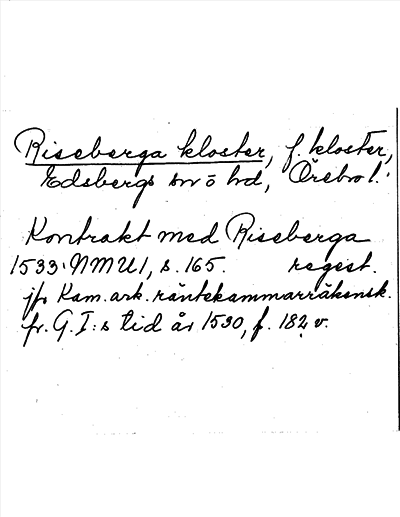 Riseberga kloster, f. kloster,
Edsbergs sn o hd, Örebro l.
Kontrakt med Riseberga
1533. NMU1, s. 165. regest.
jfr Kam. ark. räntekammarräkensk.
fr. G. I:s tid år 1530, f. 182 v.